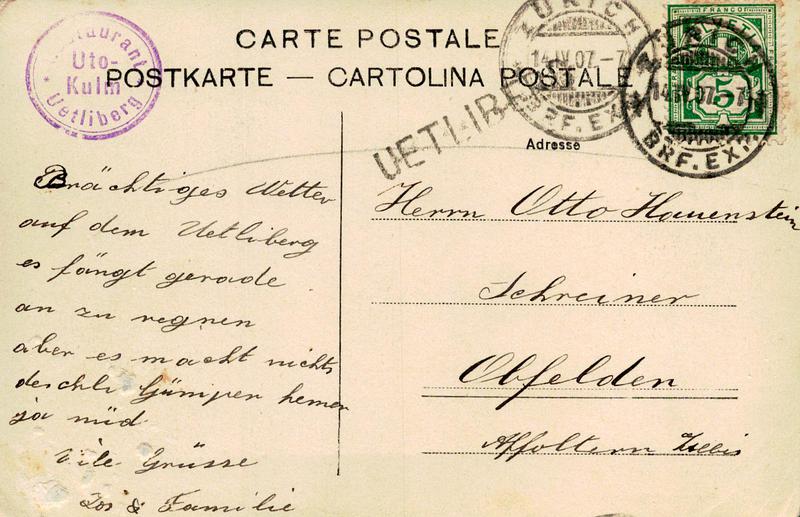 Restaurant
Uto-
Kulm
Uetliberg
CARTE POSTALE
POSTKARTE — CARTOLINA POSTALE
ZÜRICH
14.IV.07.-7
BRF. EXP.
UETLIBERG
FRANCO
HELVETIA
5
ZÜRICH
14.IV.07.-7
BRF. EXP.
Adresse
Prächtiges Wetter
auf dem Uetliberg
es fängt gerade
an zu regnen
aber es macht nichts
Gümper hemer
ja nüd
Vile Grüsse
& Familie
Herrn Otto Hauenstein
Schreiner
Obfelden
Affoltern